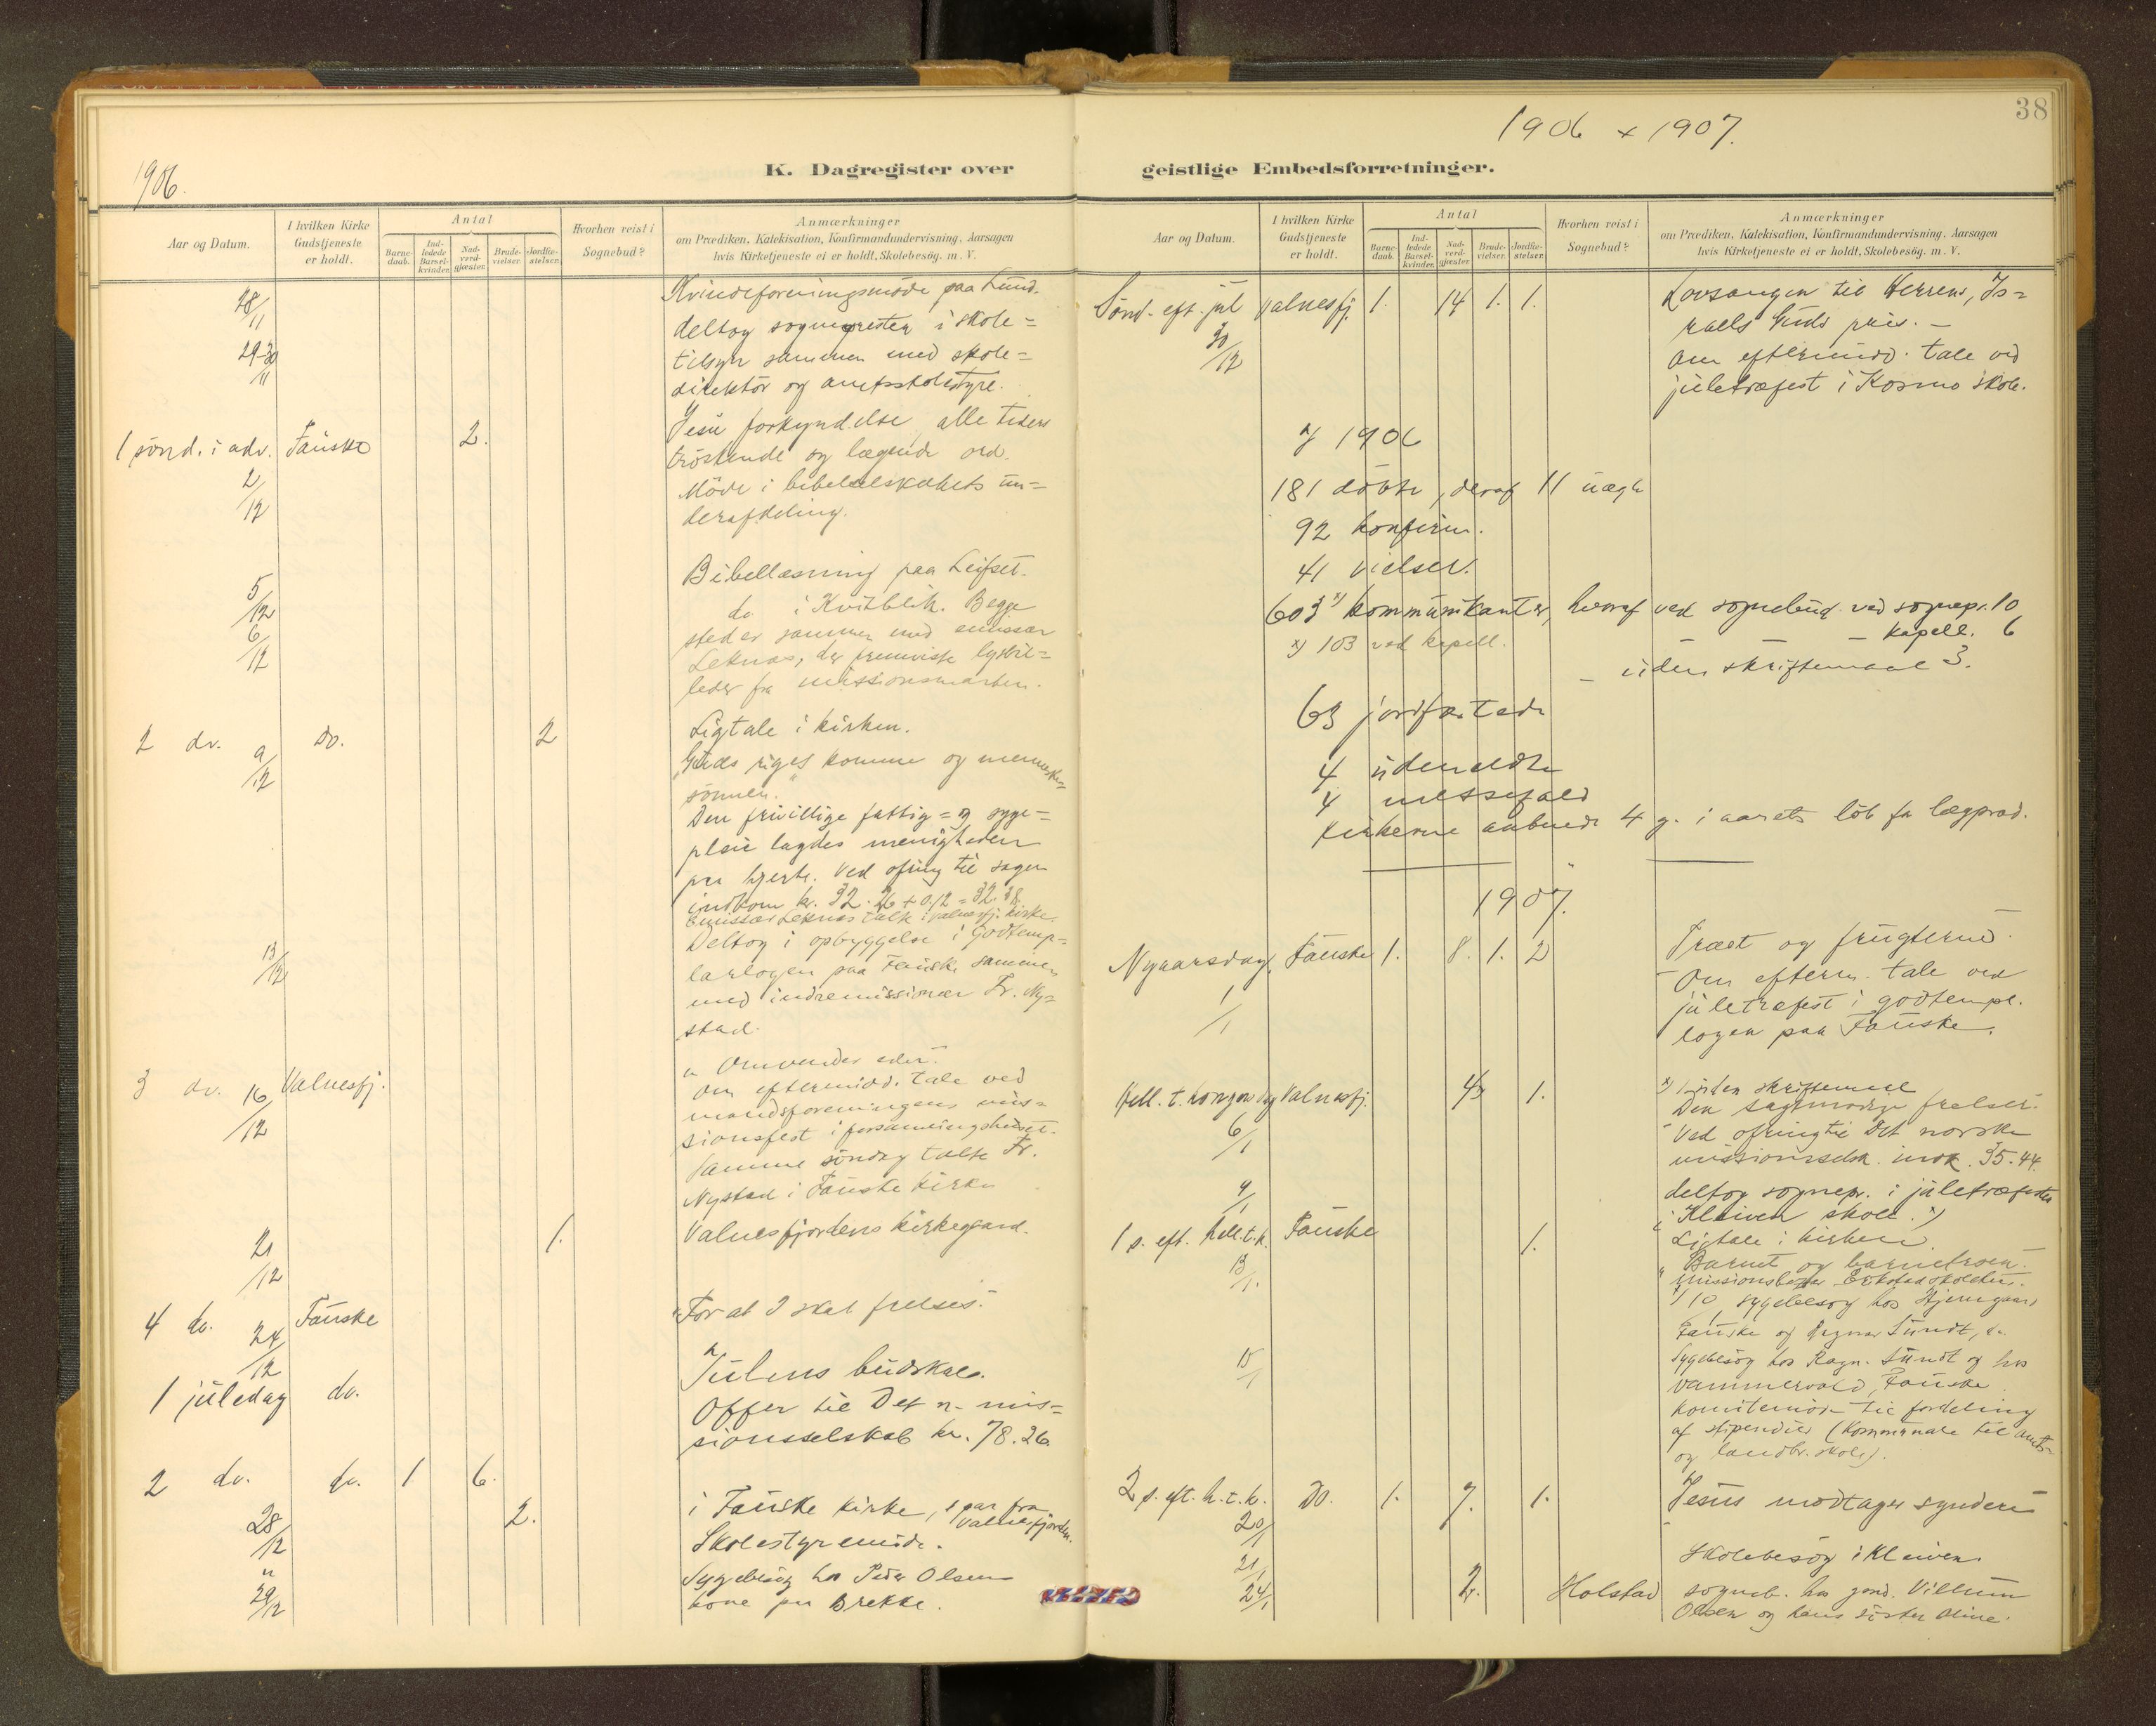 38
1906 + 1907.
1906.
K. Dagregister over geistlige Embedsforretninger.
Aar og Datum.
I hvilken Kirke Gudstjeneste er holdt.
Antal
Barne-daab.
Ind-ledede Barsel-kvinder.
Nad-verd-gjæster.
Brude-vielser.
Jordfæ-stelser.
Hvorhen reist i Sognebud?
Anmærkninger
om Prædiken, Katekisation, Konfirmandundervisning, Aarsagen
hvis Kirketjeneste ei er holdt, Skolebesög. m. V.
28/11 Kvindeforeningsmöde paa Lund.
29-30/11 deltog sognepresten i skole=
tilsyn sammen med skole=
direktör og amtsskolestyre.
1 sönd. i adv. Fauske 2. Jesu forkyndelse, alle tiders
2/12 tröstende og lægende ord.
Möde i bibelselskabets un=
derafdeling.
5/12 Bibellæsning paa Leifset.
6/12 do i Kvitblik. Begge
steder sammen med emissær
Leknes, der fremviste lysbil=
leder fra missionsmarken.
2 do. 9/12 Do. 2 Ligtale i kirken.
"Guds riges komme og menneske
sönnen."
Den frivillige fattig= og syge=
pleie lagdes menigheden
paa hjerte. Ved ofring til sagen
indkom kr. 32.26 + 0.12 = 32.38
Emissær Leknes talte i Valnesfj. kirke.
13/12 Deltog i opbyggelse i Godtemp=
larlogen paa Fauske sammen
med indremissionær Fr. Ny=
stad.
3 do. 16/12 Valnesfj. "Omvender eder".
Om eftermidd. tale ved
mandsforeningens mis=
sionsfest i forsamlingshuset.
Samme söndag talte Fr.
Nystad i Fauske kirke
21/12 1. Valnesfjordens kirkegaard.
4 do. 24/12 Fauske "For at I skal frelses".
1 juledag do. Julens budskab.
Offer til Det n. mis=
sionsselskab kr. 78.26
2 do. do. 1 6.
28/12 2. i Fauske kirke, 1 par fra Valnesfjorden.
Skolestyremöde.
29/12 Sygebesög hos Peder Olsens
kone paa Brekke.
Aar og Datum.
I hvilken Kirke Gudstjeneste er holdt.
Antal
Barne-daab.
Ind-ledede Barsel-kvinder.
Nad-verd-gjæster.
Brude-vielser.
Jordfæ-stelser.
Hvorhen reist i Sognebud?
Anmærkninger
om Prædiken, Katekisation, Konfirmandundervisning, Aarsagen
hvis Kirketjeneste ei er holdt, Skolebesög. m. V.
Sönd. eft. jul Valnesfj. 1. 14 1. 1. Lovsangen til Herren, Is=
30/12 raels Guds pris. –
Om eftermidd. tale ved
juletræfest i Kosmo skole.
1906
181 döbte, deraf 11 uægte
92 konfirm.
41 vielser.
603 x) kommunikanter, hvoraf ved sognebud ved sognepr. 10
x) 103 ved kapell. – – – kapell. 6
– uden skriftemaal 3.
63 jordfæstede
4 udmeldte
4 messefald
Kirkerne aabnede 4 g. i aarets löb for lægpræd.
1907.
Nyaarsdag Fauske 1. 8. 1. 2 Træet og frugterne.
1/1 Om efterm. tale ved
juletræfest i godtempl.
logen paa Fauske.
Hell. t. kongers dag Valnesfj. 1. x) 1 uden skriftemaal
6/1 Den sagtmodige frelser.
Ved ofring til Det norske
missionsselsk. indk. 35.44.
9/1 deltog sognepr. i juletræfesten
i Kleiven skole. x)
1 s. eft. hell. t. k. Fauske 1. Ligtale i kirken.
13/1. "Barnet og barnetroen".
10/1 sygebesög hos
Fauske og Ragnar Sundt, do
15/1 Sygebesög hos Ragn. Sundt og hos
Vammervold, Fauske
Komitemöde til fordeling
af stipendier (kommunale til amts=
og landbr. skole).
2 s. eft. h. t. k. Do. 1. 7. 1. "Jesus modtager syndere"
20/1
21/1 Skolebesög i Kleiven.
24/1 2. Holstad sogneb. hos gmd. Villum
Olsen og hans söster Oline.